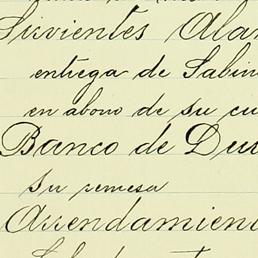 Sirvientes Alam
entrega de Sabin
en abono de su cu
Banco de Dur
Su remesa
Arrendamien